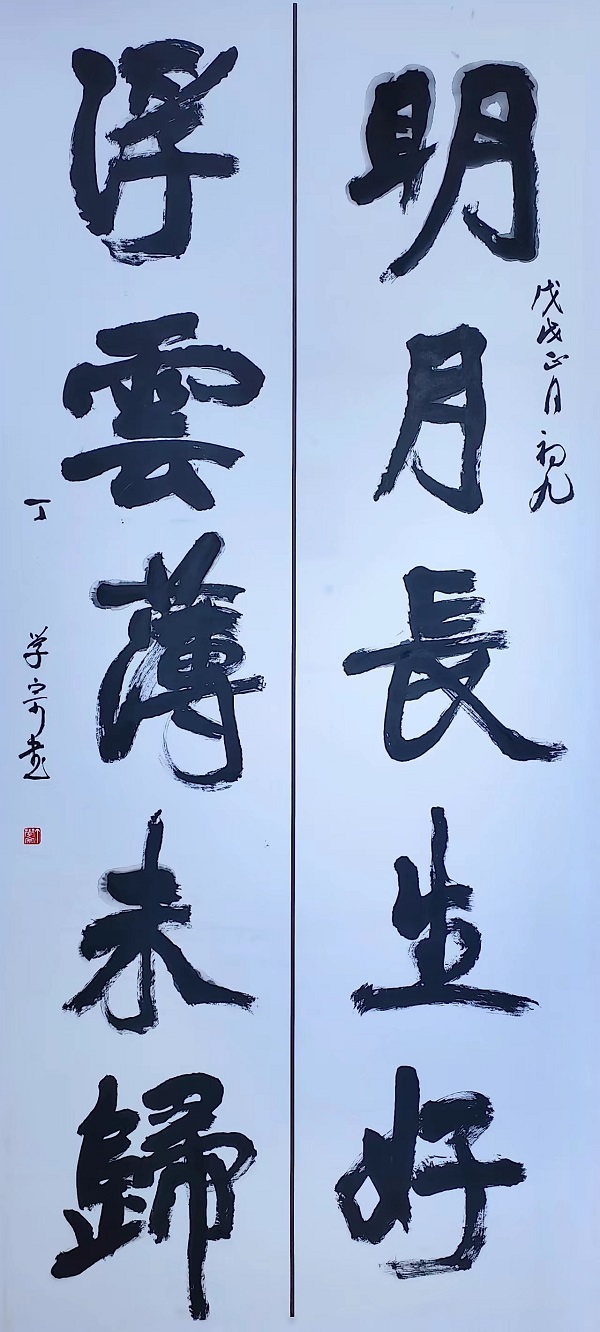 明月長生好
戊戌正月初九
浮雲薄未歸
丁学寄书